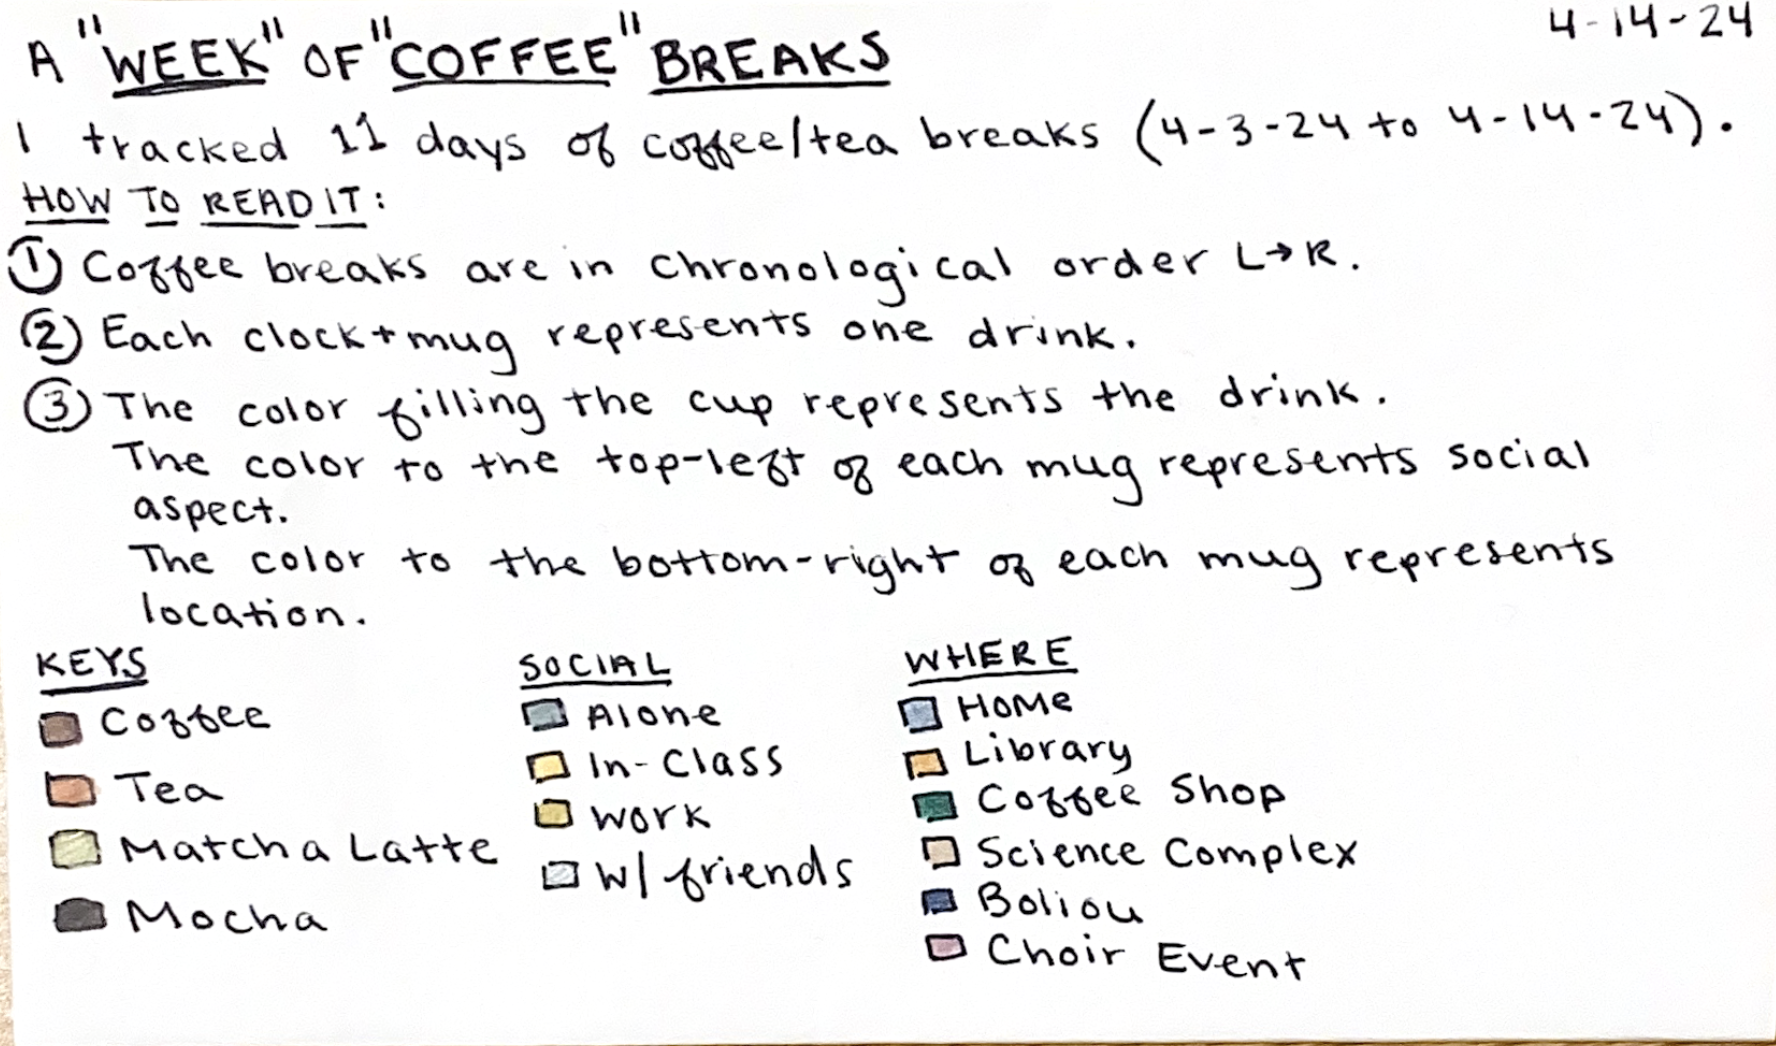 4-14-24
A "WEEK" OF "COFFEE" BREAKS
I tracked 11 days of coffee/tea breaks (4-3-24 to 4-14-24).
HOW TO READ IT:
① Coffee breaks are in chronological order L→R.
② Each clock+mug represents one drink.
③ The color filling the cup represents the drink.
The color to the top-left of each mug represents social
aspect.
The color to the bottom-right of each mug represents
location.
KEYS
Coffee
Tea
Matcha Latte
Mocha
SOCIAL
Alone
In-Class
Work
W/ friends
WHERE
Home
Library
Coffee Shop
Science Complex
Boliou
Choir Event